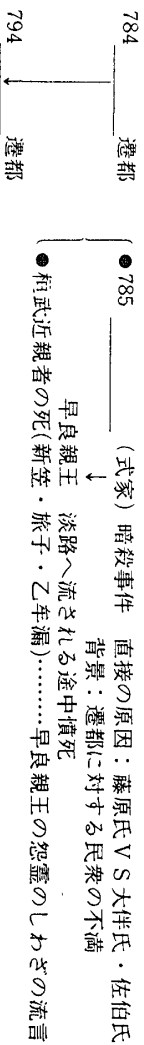 784 ＿＿＿ 遷都
●785 ＿＿＿＿（式家）暗殺事件　直接の原因：藤原氏ＶＳ大伴氏・佐伯氏
背景：遷都に対する民衆の不満
↓
早良親王　淡路へ流される途中憤死
●桓武近親者の死（新笠・旅子・乙牟漏）………早良親王の怨霊のしわざの流言
794 ＿＿＿ 遷都